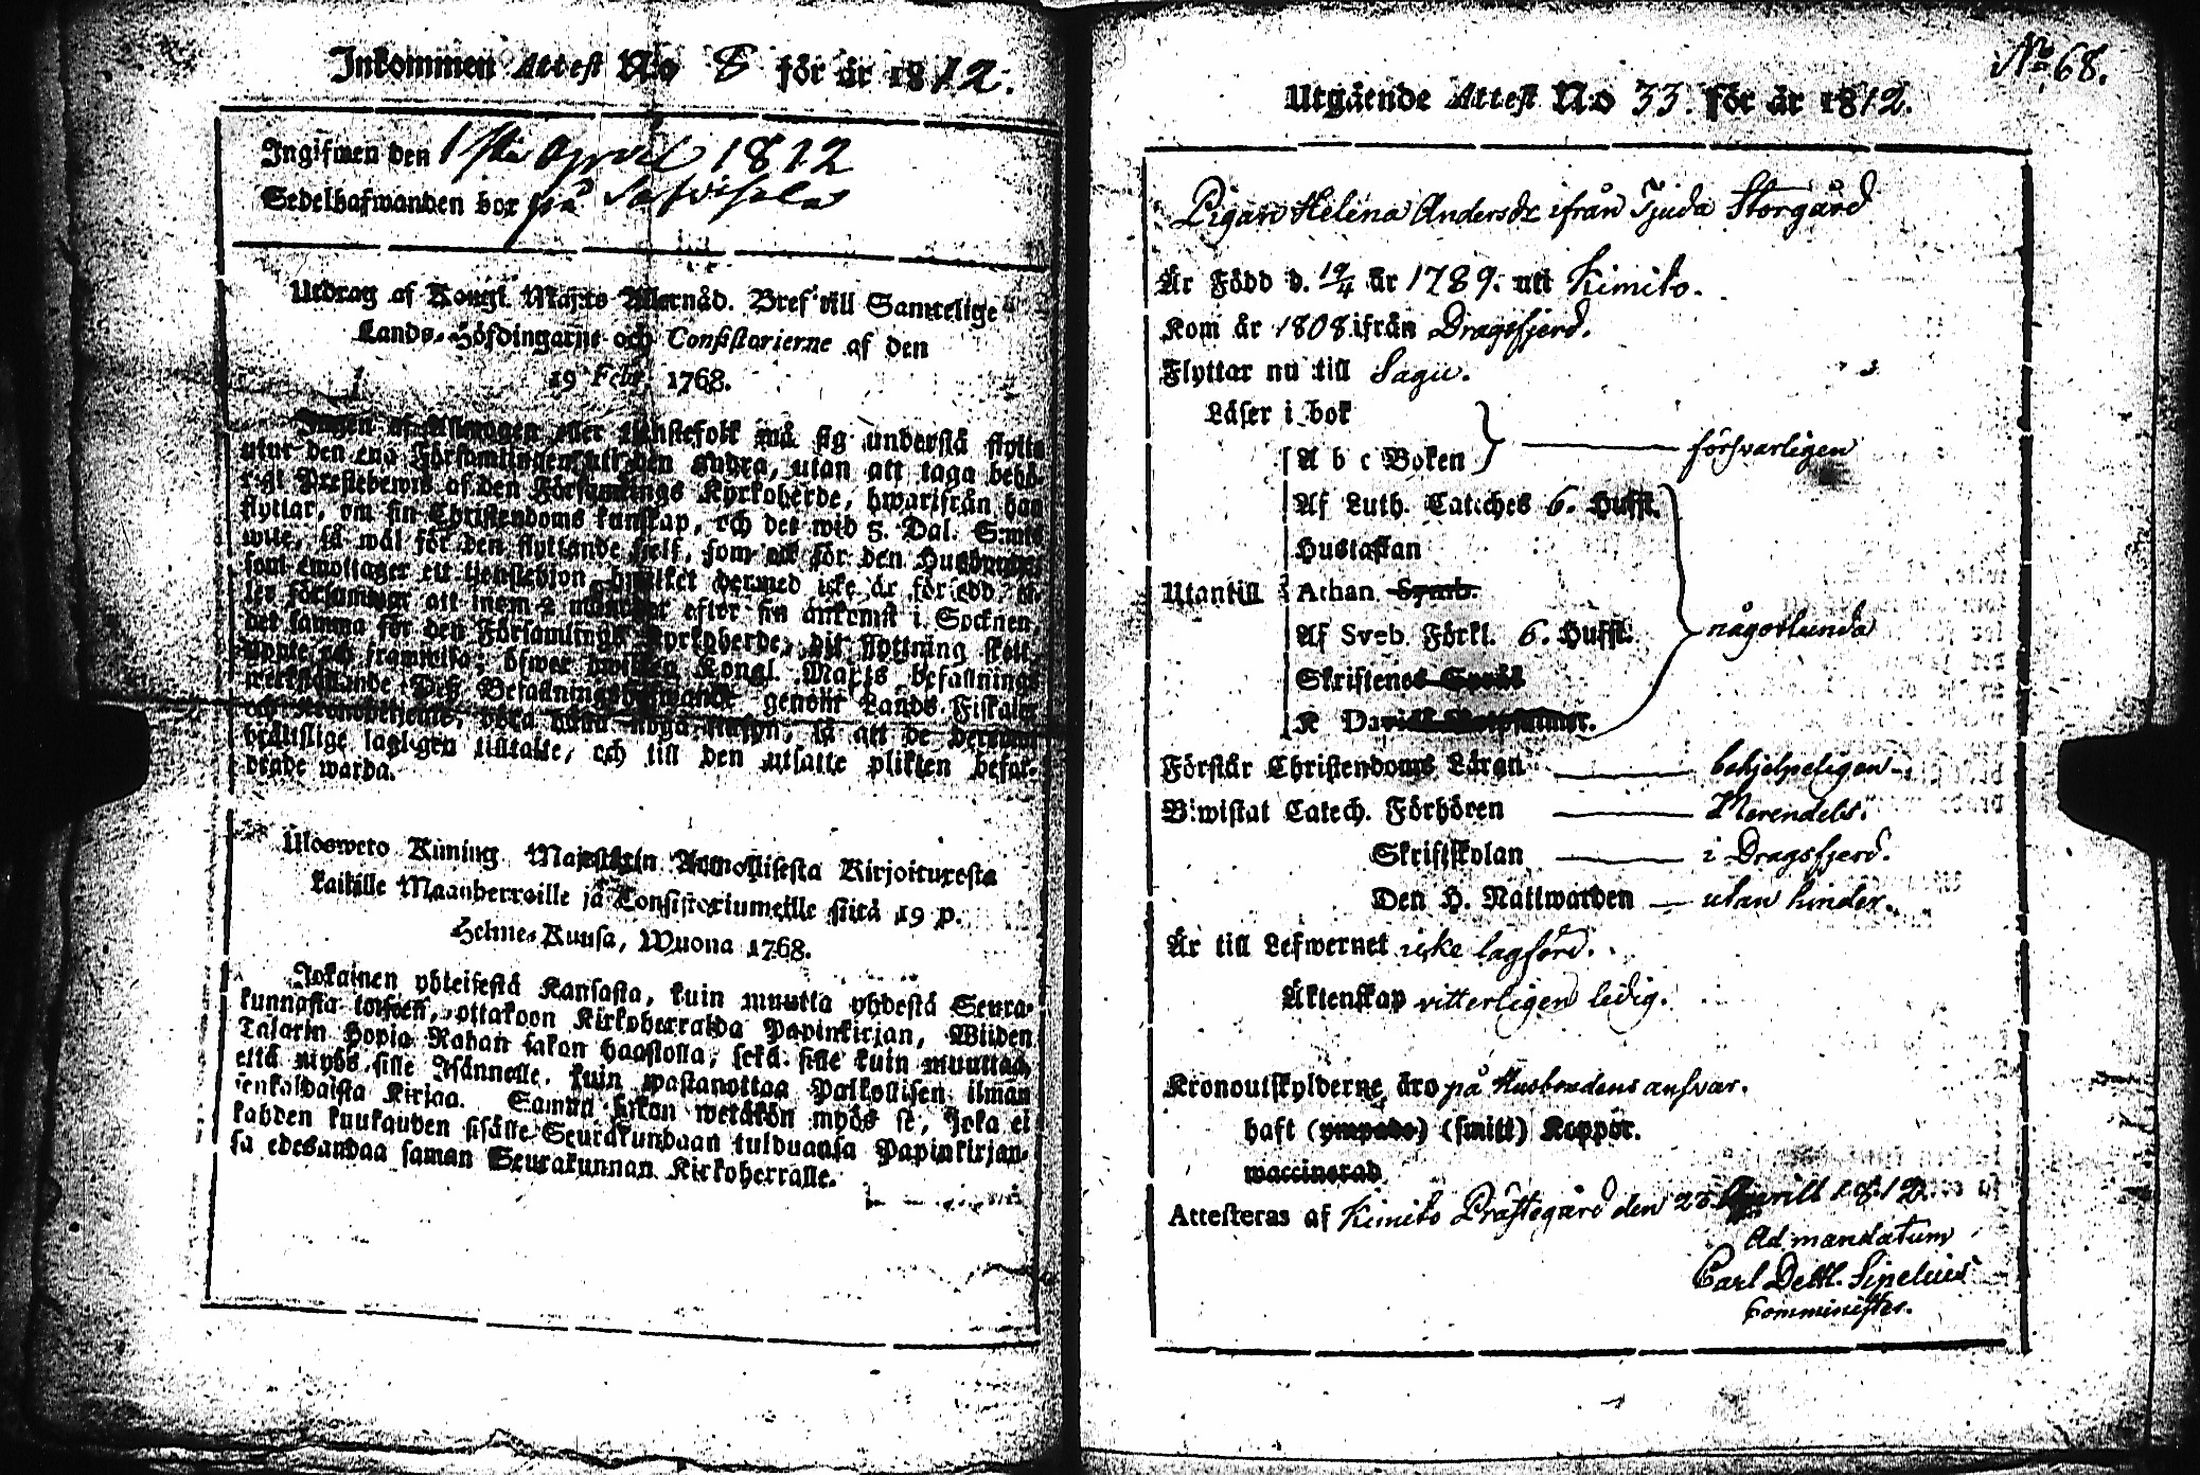 Inkommen Attest N:o 8 för år 1812.
Ingifwen den 1sta April 1812
Sedelhafwanden bor på
Utdrag af Kongl. Maj:ts Allernåd. Bref till Samtelige
Lands-Höfdingarne och Consistorierne af den
19 Febr. 1768.
Ingen af Allmogen eller tienstefolk må sig understå flytta
utur den ena Församlingen till den andra, utan att taga behö-
rigt Prestebewis af den Församlings Kyrkoherde, hwarifrån han
flyttar, om sin Christendoms kunskap, och det wid 5. Dal. S:mts
wite, så wäl för den flyttande sielf, som ock för den Husbonde,
som emottager ett tienstehjon, hwilket dermed icke är försedd, el-
ler försummar att inom 2 månader efter sin ankomst i Socknen,
det samma för den Församlings Kyrkoherde, dit flyttning skett,
uppte och framwisa; öfwer hwilken Kongl. Maj:ts befallnings
werkställande Deß Befallningshafwande genom Lands Fiskaler
och Kronobetiente, böra hålla noga tilsyn, så att de
brättslige lagligen tilltalte, och till den utsatte plikten befor-
drade warda.
Ulosweto Kuning Majestetin Armollisesta Kirjoituxesta
kaikille Maanherroille ja Consistoriumeille siitä 19 p.
Helme-Kuusa, Wuona 1768.
Jokainen yhteisestä Kansasta, kuin muutta yhdestä Seura-
kunnasta toiseen, ottakoon Kirkoherralda Papinkirjan, Wiiden
Talarin Hopia Rahan sakon haastolla, sekä sille kuin muuttaa,
että myös sille Isännelle, kuin wastanottaa Palkollisen ilman
senkaldaista Kirjaa. Saman sakon wetäkön myös se, joka ei
kahden kuukauden sisälle Seurakundaan tulduansa Papinkirjan-
sa edesandaa saman Seurakunnan Kirkoherralle.
No 68.
Utgående Attest N:o 33. för år 1812.
Pigan Helena Andersdr ifrån Tjuda Storgård
Är Född d. 19/4 år 1789. uti Kimito.
Kom år 1808 ifrån Dragsfjerd.
Flyttar nu till Sagu.
Läser i bok
A b c Boken försvarligen
Af Luth. Cateches 6. Hufst.
Hustaflan
Utantill Athan. Symb. någorlunda
Af Sveb. Förkl. 6. Hufst.
Skriftenes Språk
K Davids Botpsalmer.
Förstår Christendoms Läran behjelpeligen
Biwistat Catech. Förhören Merendels.
Skriftskolan i Dragsfjerd.
Den H. Nattwarden utan hinder.
Är till Lefwernet icke lagförd.
Äktenskap vitterligen ledig.
Kronoutskylderne äro på Husbondens ansvar.
haft (ympade) (smitt) Koppor.
waccinerad
Attesteras af Kimito Prästegård den 23 Aprill 1812.
Ad mandatum
Carl Detl. Sipelius
Comminister.